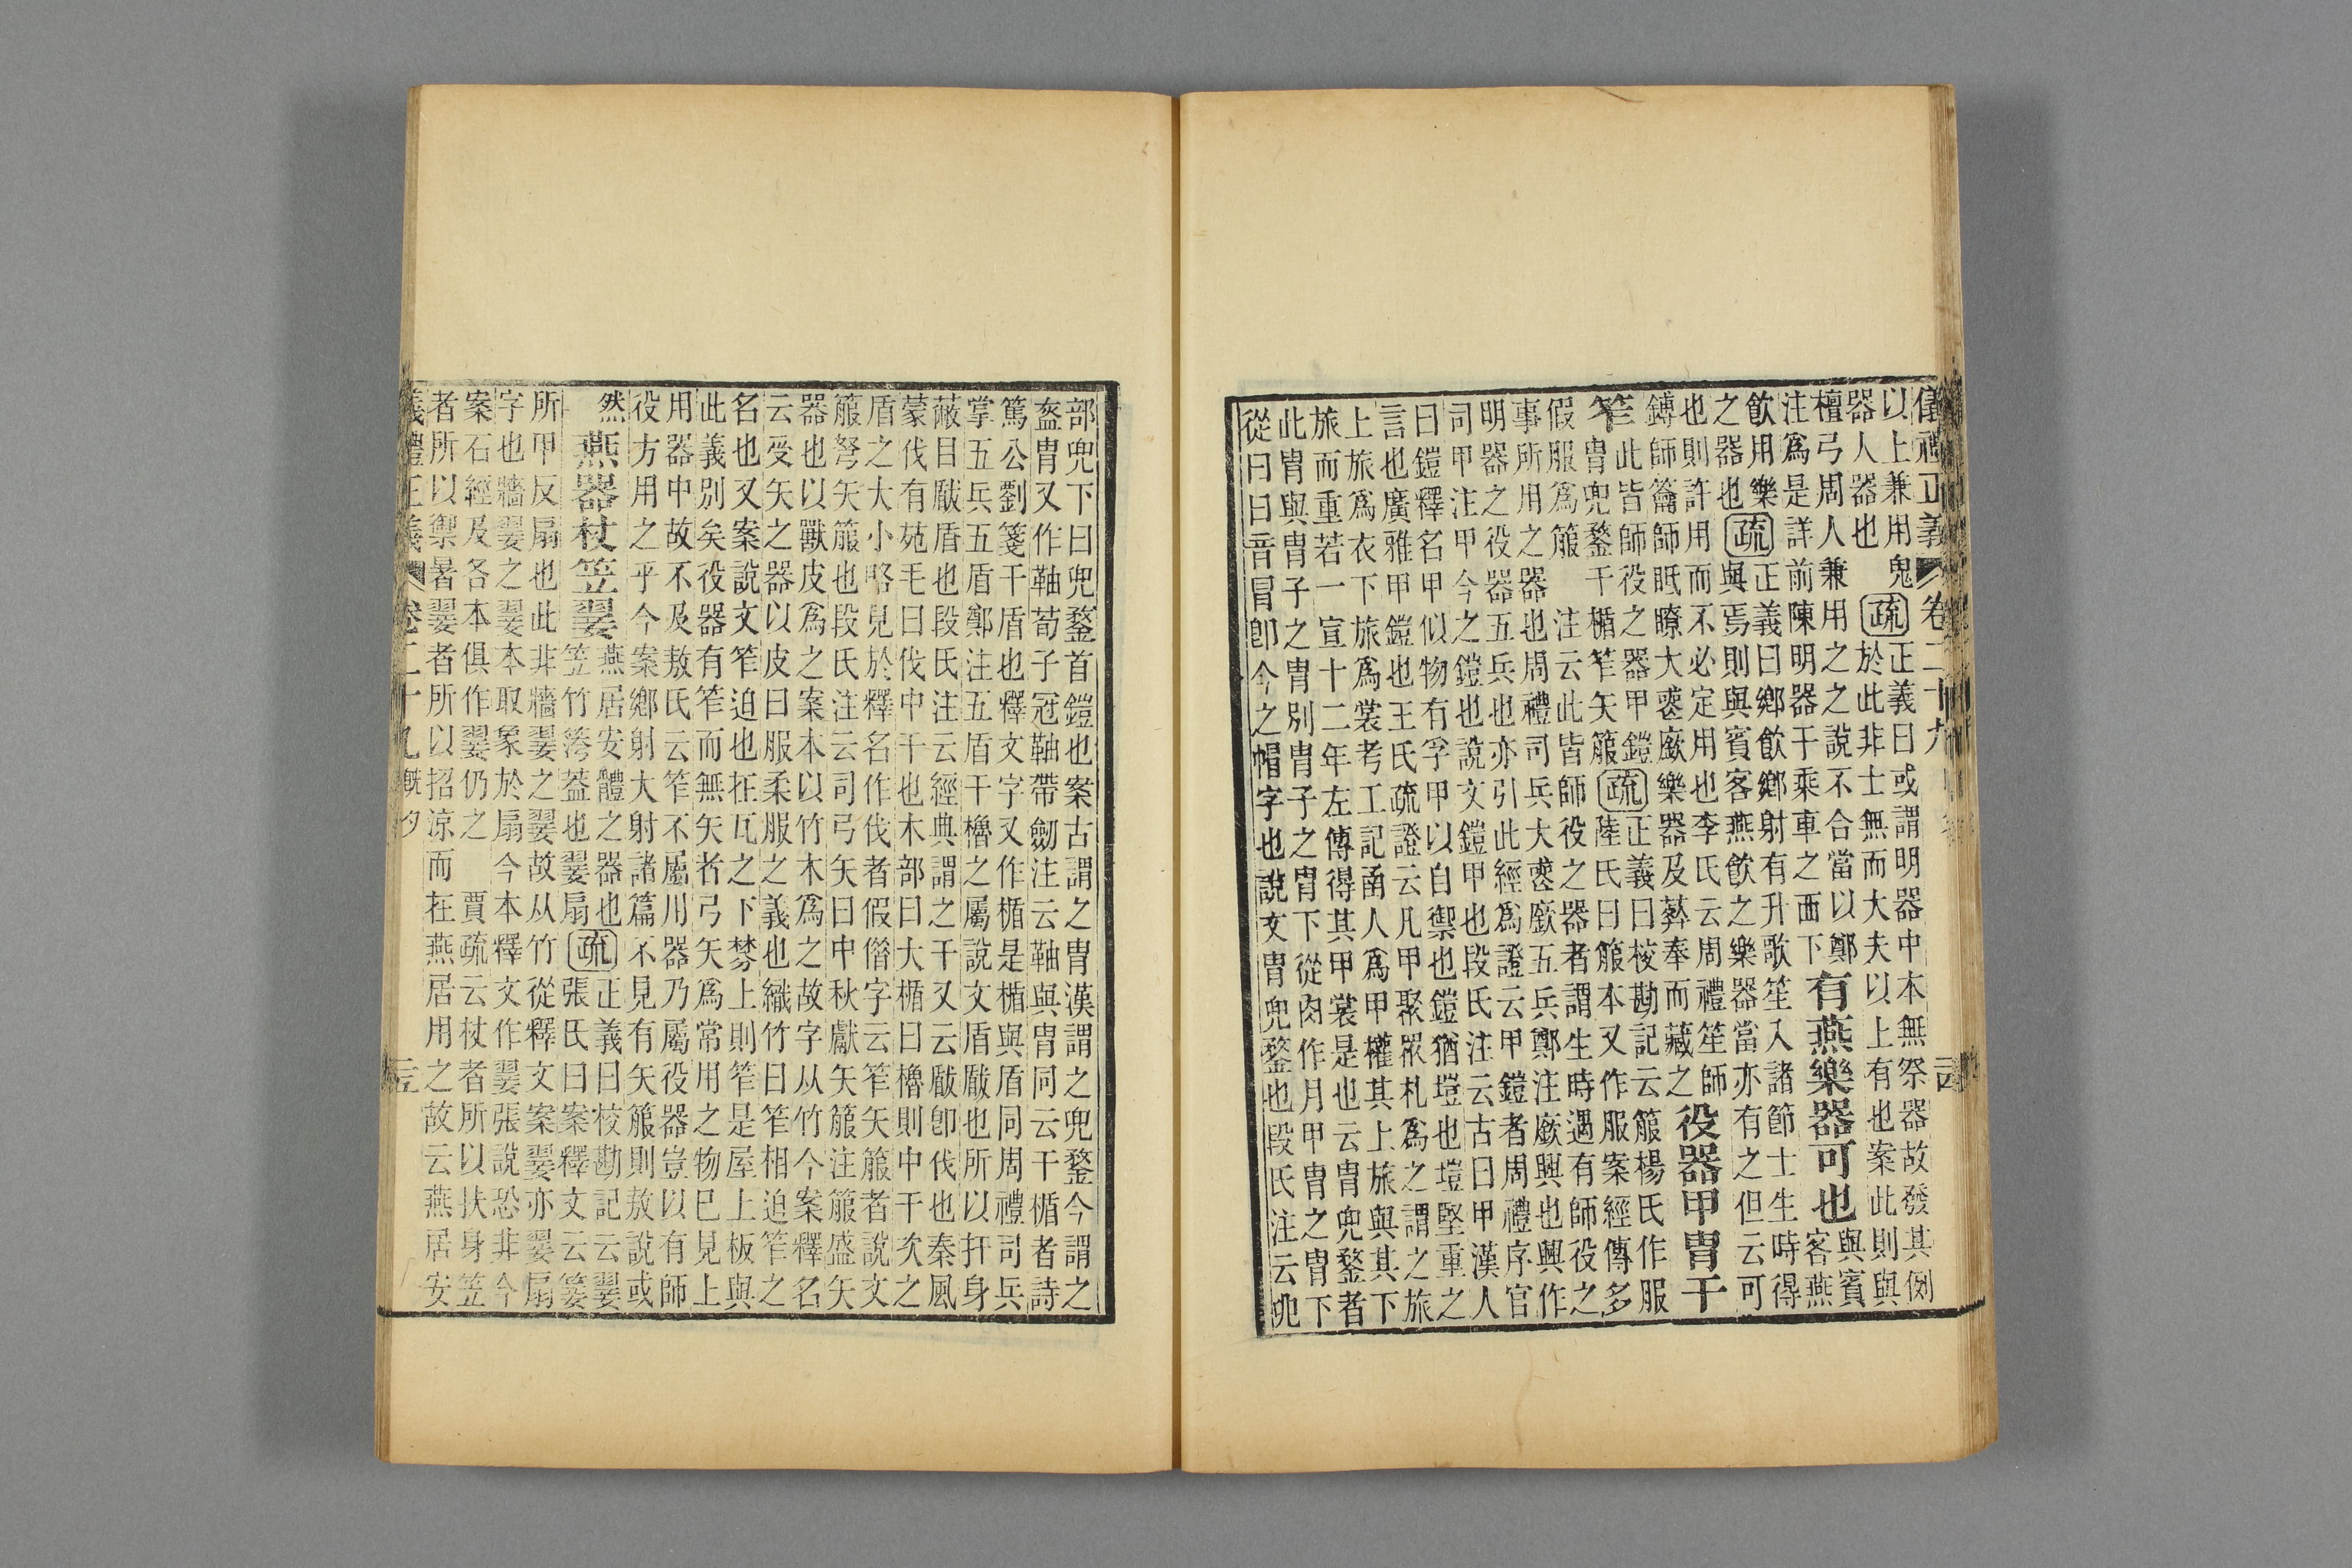 儀禮正義 卷二十九
以上兼用鬼
器人器也
疏
正義曰或謂明器中本無祭器故發其例
於此非士無而大夫以上有也案此則與
檀弓周人兼用之之說不合當以鄭
注爲是詳前陳明器于乘車之西下
有燕樂器可也
與賓
客燕
飲用樂
之器也
疏
正義曰鄉飲鄉射有升歌笙入諸節士生時得
與焉則與賓客燕飲之樂器當亦有之但云可
也則許用而不必定用也李氏云周禮笙師
鎛師籥師眡瞭大喪廞樂器及葬奉而藏之
役器甲冑干
笮
此皆師役之器甲鎧
冑兜鍪干楯笮矢箙
疏
正義曰校勘記云箙楊氏作服
陸氏曰箙本又作服案經傳多
假服爲箙 注云此皆師役之器者謂生時遇有師役之
事所用之器也周禮司兵大喪廞五兵鄭注廞興也興作
明器之役器五兵也亦引此經爲證云甲鎧者周禮序官
司甲注甲今之鎧也說文鎧甲也段氏注云古曰甲漢人
曰鎧釋名甲似物有孚甲以自禦也鎧猶塏也塏堅重之
言也廣雅甲鎧也王氏疏證云凡甲聚眾札爲之謂之旅
上旅爲衣下旅爲裳考工記函人爲甲權其上旅與其下
旅而重若一宣十二年左傳得其甲裳是也云冑兜鍪者
此冑與冑子之冑別冑子之冑下從肉作月甲冑之冑下
從曰曰音冒卽今之帽字也說文冑兜鍪也段氏注云兜
部兜下曰兜鍪首鎧也案古謂之冑漢謂之兜鍪今謂之
盔冑又作䩜荀子冠䩜帶劒注云䩜與冑同云干楯者詩
篤公劉箋干盾也釋文字又作楯是楯與盾同周禮司兵
掌五兵五盾鄭注五盾干櫓之屬說文盾瞂也所以扞身
蔽目瞂盾也段氏注云經典謂之干又云瞂卽伐也秦風
蒙伐有苑毛曰伐中干也木部曰大楯曰櫓則中干次之
盾之大小略見於釋名作伐者假僭字云笮矢箙者說文
箙弩矢箙也段氏注云司弓矢曰中秋獻矢箙注箙盛矢
器也以獸皮爲之案本以竹木爲之故字从竹今案釋名
云受矢之器以皮曰服柔服之義也織竹曰笮相迫笮之
名也又案說文笮迫也在瓦之下棼上則笮是屋上板與
此義別矣役器有笮而無矢者弓矢爲常用之物已見上
用器中故不及敖氏云笮不屬川器乃屬役器豈以有師
役方用之乎今案鄉射大射諸篇不見有矢箙則敖說或
然
燕器杖笠翣
燕居安體之器也
笠竹䈵蓋也翣扇
疏
正義曰校勘記云翣
張氏曰案釋文云箑
所甲反扇也此非牆翣之翣故从竹從釋文案翣亦翣扇
字也牆翣之翣本取象於扇今本釋文作翣張說恐非今
案石經及各本俱作翣仍之 賈疏云杖者所以扶身笠
者所以禦暑翣者所以招涼而在燕居用之故云燕居安
儀禮正義 卷二十九 旣夕